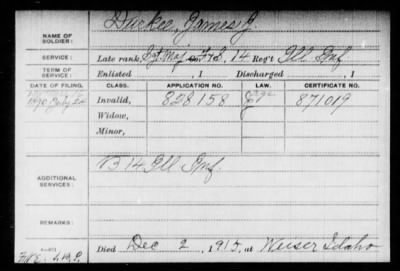 NAME OF SOLDIER: Durkee, James J.
SERVICE: Late rank, Sgt Maj F&S, 14 Reg't Ill Inf
TERM OF SERVICE: Enlisted , 1 Discharged , 1
DATE OF FILING. CLASS. APPLICATION NO. LAW. CERTIFICATE NO.
1890 July Invalid, 828158 871019
Widow,
Minor,
ADDITIONAL SERVICES: B 14 Ill Inf.
REMARKS:
Died Dec 2, 1915, at Weiser Idaho